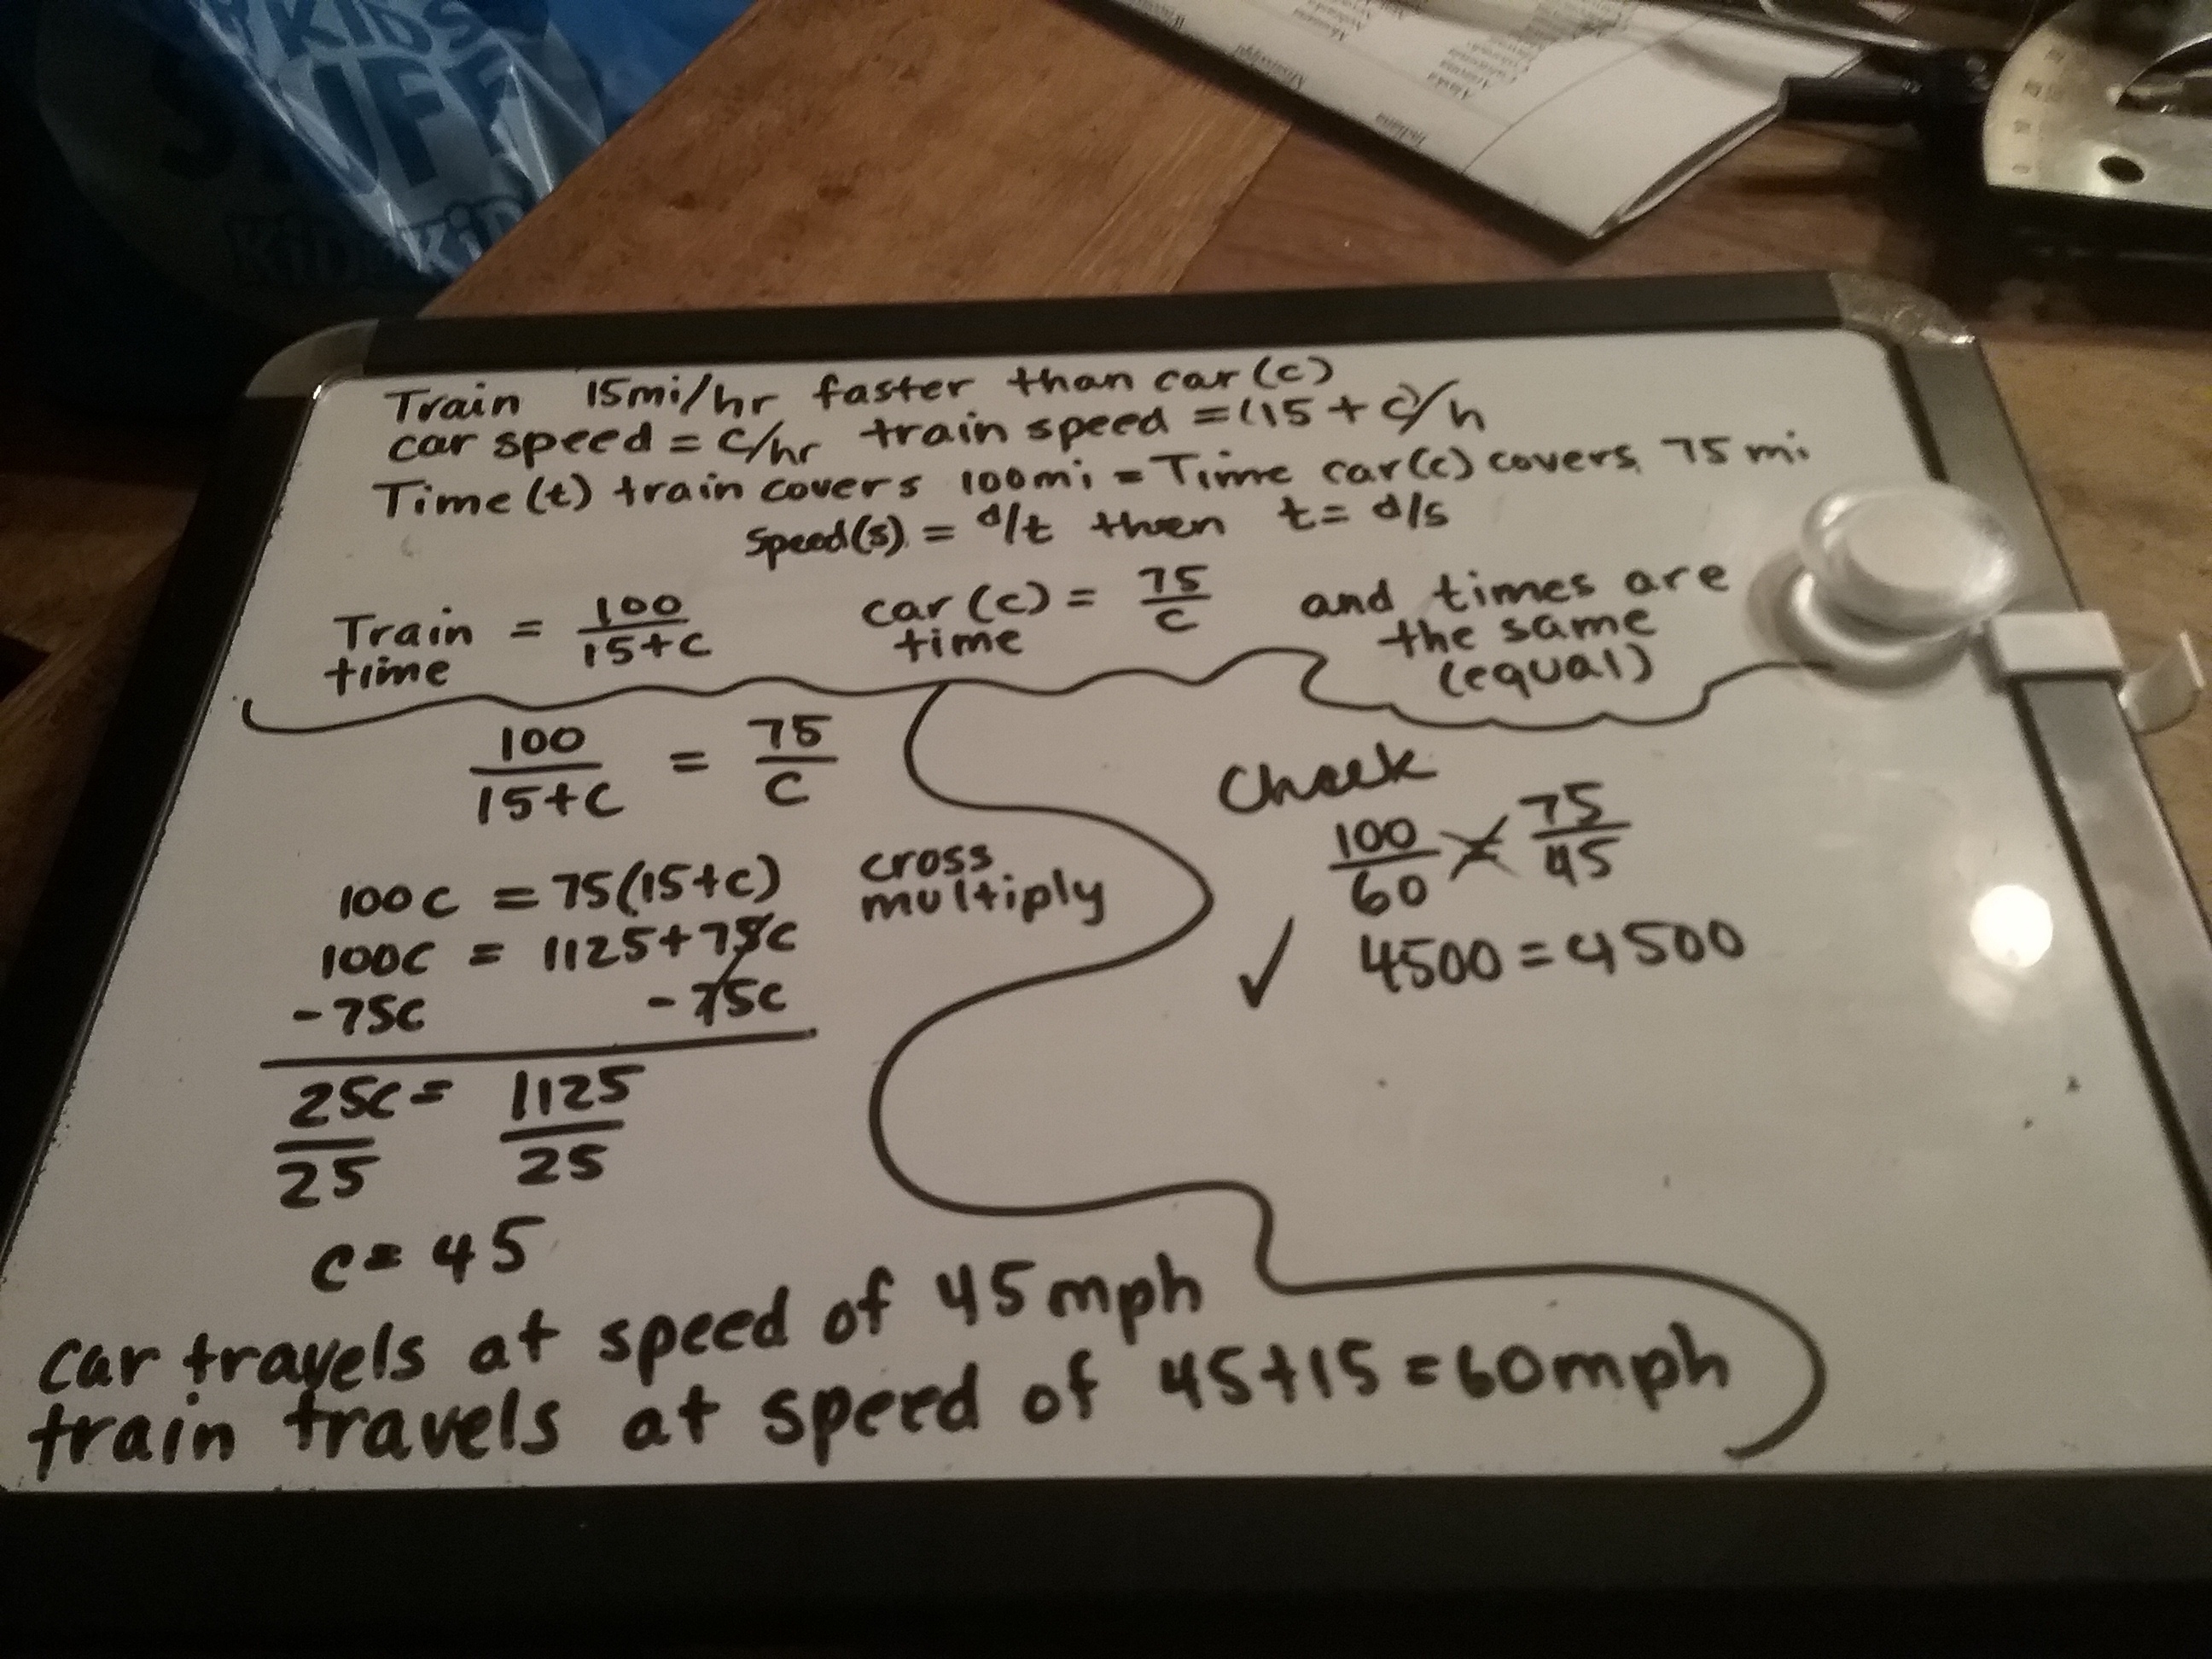 KIDS
STUFF
Train 15mi/hr faster than car (c)
car speed = c/hr train speed = (15 + c)/h
Time (t) train covers 100mi = Time car(c) covers 75 mi
Speed(s) = d/t then t = d/s
Train time = 100/15+c car (c) time = 75/c and times are the same (equal)
100/15+c = 75/c
100c = 75(15+c) cross multiply
100c = 1125+75c
-75c -75c
25c/25 = 1125/25
c = 45
car travels at speed of 45 mph
train travels at speed of 45+15 = 60mph
Check
100/60 = 75/45
✓ 4500 = 4500
Mississippi
Alaska
Indiana